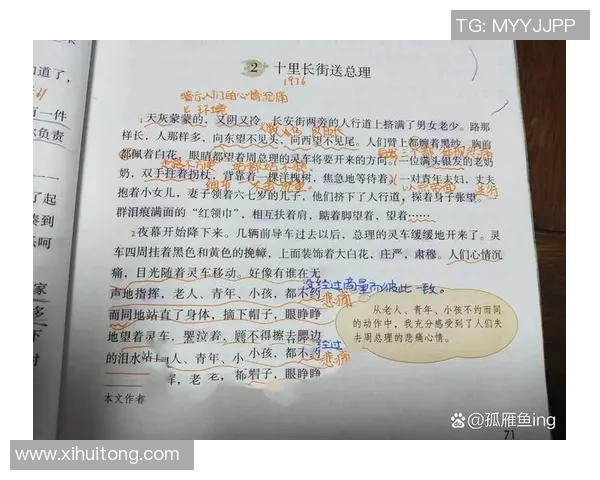 TG: MYYJJPP
2 十里长街送总理
1976
暗示人们的心情沉痛
环境
1天灰蒙蒙的，又阴又冷。长安街两旁的人行道上挤满了男女老少。路那
样长，人那样多，向东望不见头，向西望不见尾。人们臂上都缠着黑纱，胸前
都佩着白花，眼睛都望着周总理的灵车将要开来的方向。一位满头银发的老奶
奶，双手拄着拐杖，背靠着一棵洋槐树，焦急地等待着。一对青年夫妇，丈夫
抱着小女儿，妻子领着六七岁的儿子，他们挤下了人行道，探着身子张望。
群泪痕满面的“红领巾”，相互扶着肩，踮着脚望着，望着……
2夜幕开始降下来。几辆前导车过去以后，总理的灵车缓缓地开来了。灵
车四周挂着黑色和黄色的挽幛，上面装饰着大白花，庄严，肃穆。人们心情沉
痛，目光随着灵车移动。好像有谁在无
没经过商量而彼此一致。
声地指挥，老人、青年、小孩，都不约
悲痛
而同地站直了身体，摘下帽子，眼睁睁
地望着灵车，哭泣着，顾不得擦去腮边
的泪水
人、青年、小孩，都不约
经过
悲痛
挥，老
帽子，眼睁睁
从老人、青年、小孩不约而同
的动作中，我充分感受到了人们失
去周总理的悲痛心情。
本文作者
71
道了，
有一件
负责
了起
凑到
呋呵
家
多
下
@孤雁鱼ing
www.xihuitong.com